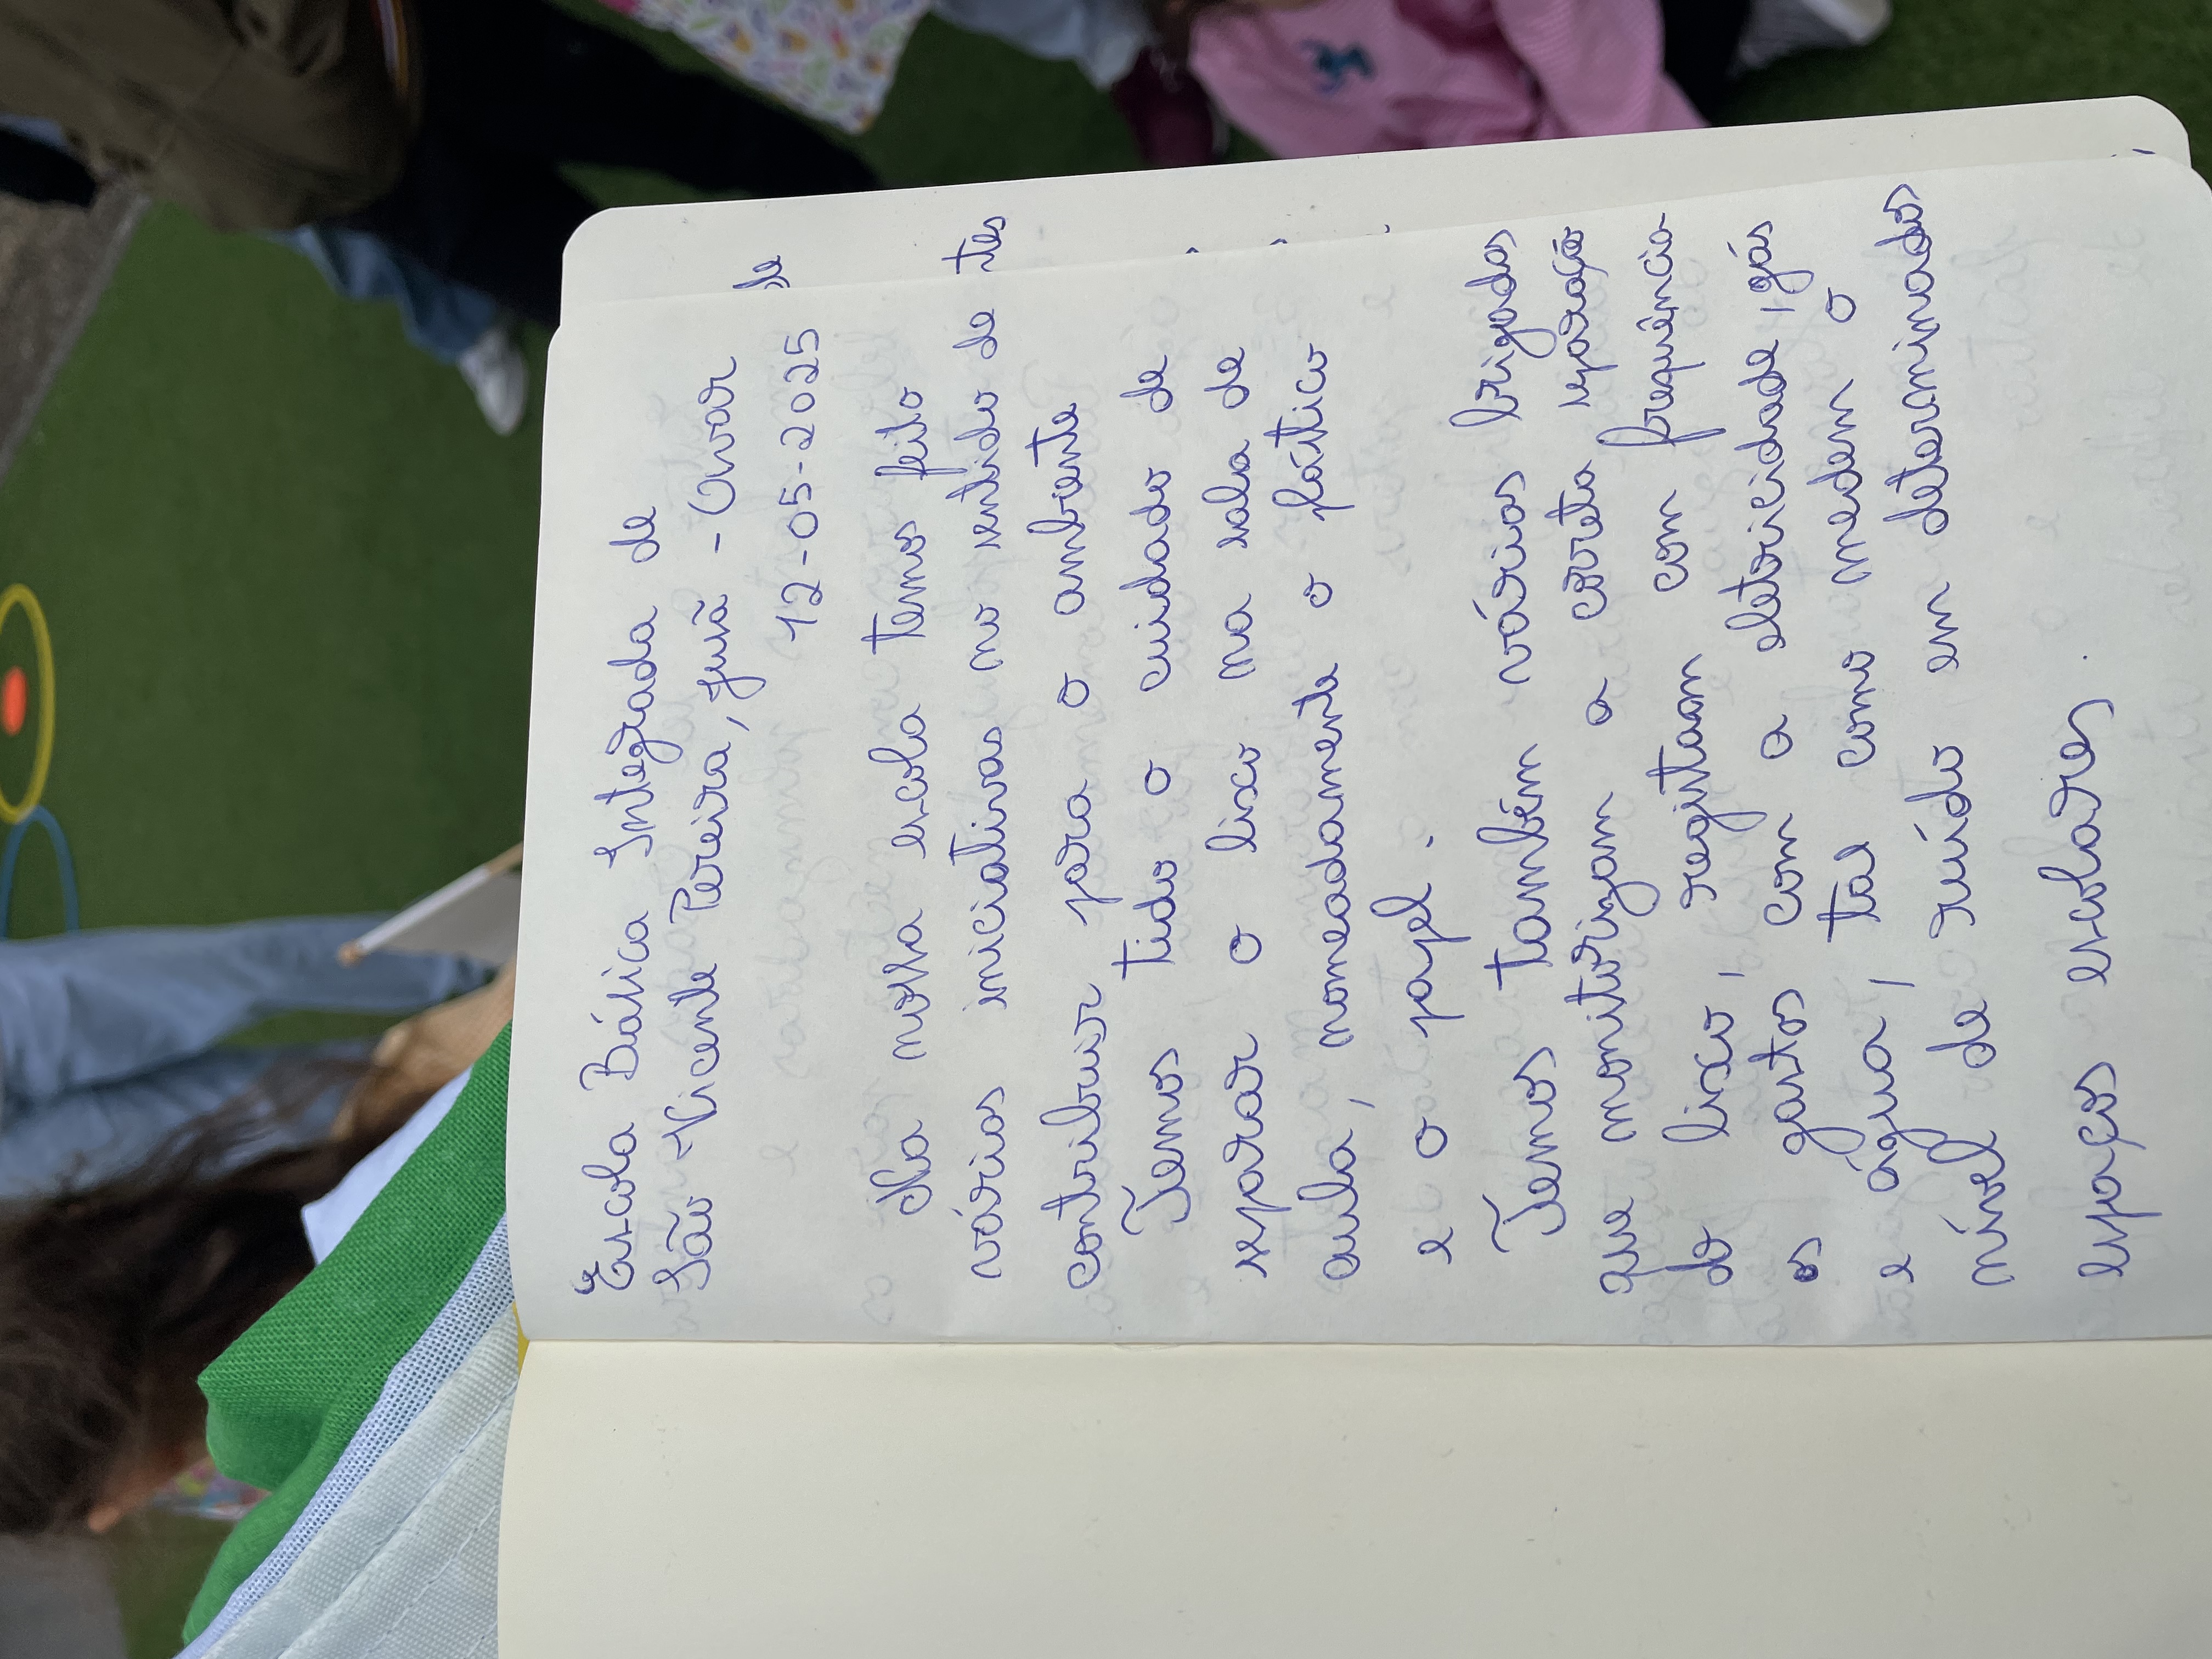 Escola Básica Integrada de
São Vicente Pereira, Jusã - Ovar
12-05-2025
Na nossa escola temos feito
várias iniciativas no sentido de
contribuir para o ambiente
Temos tido o cuidado de
separar o lixo na sala de
aula, nomeadamente o plático
e o papel.
Temos também várias brigadas
que monitorizam a correta separação
do lixo, registam com frequência
os gastos com a eletricidade, gás
e água, tal como medem o
nível de ruído em determinados
espaços escolares.
de
tes